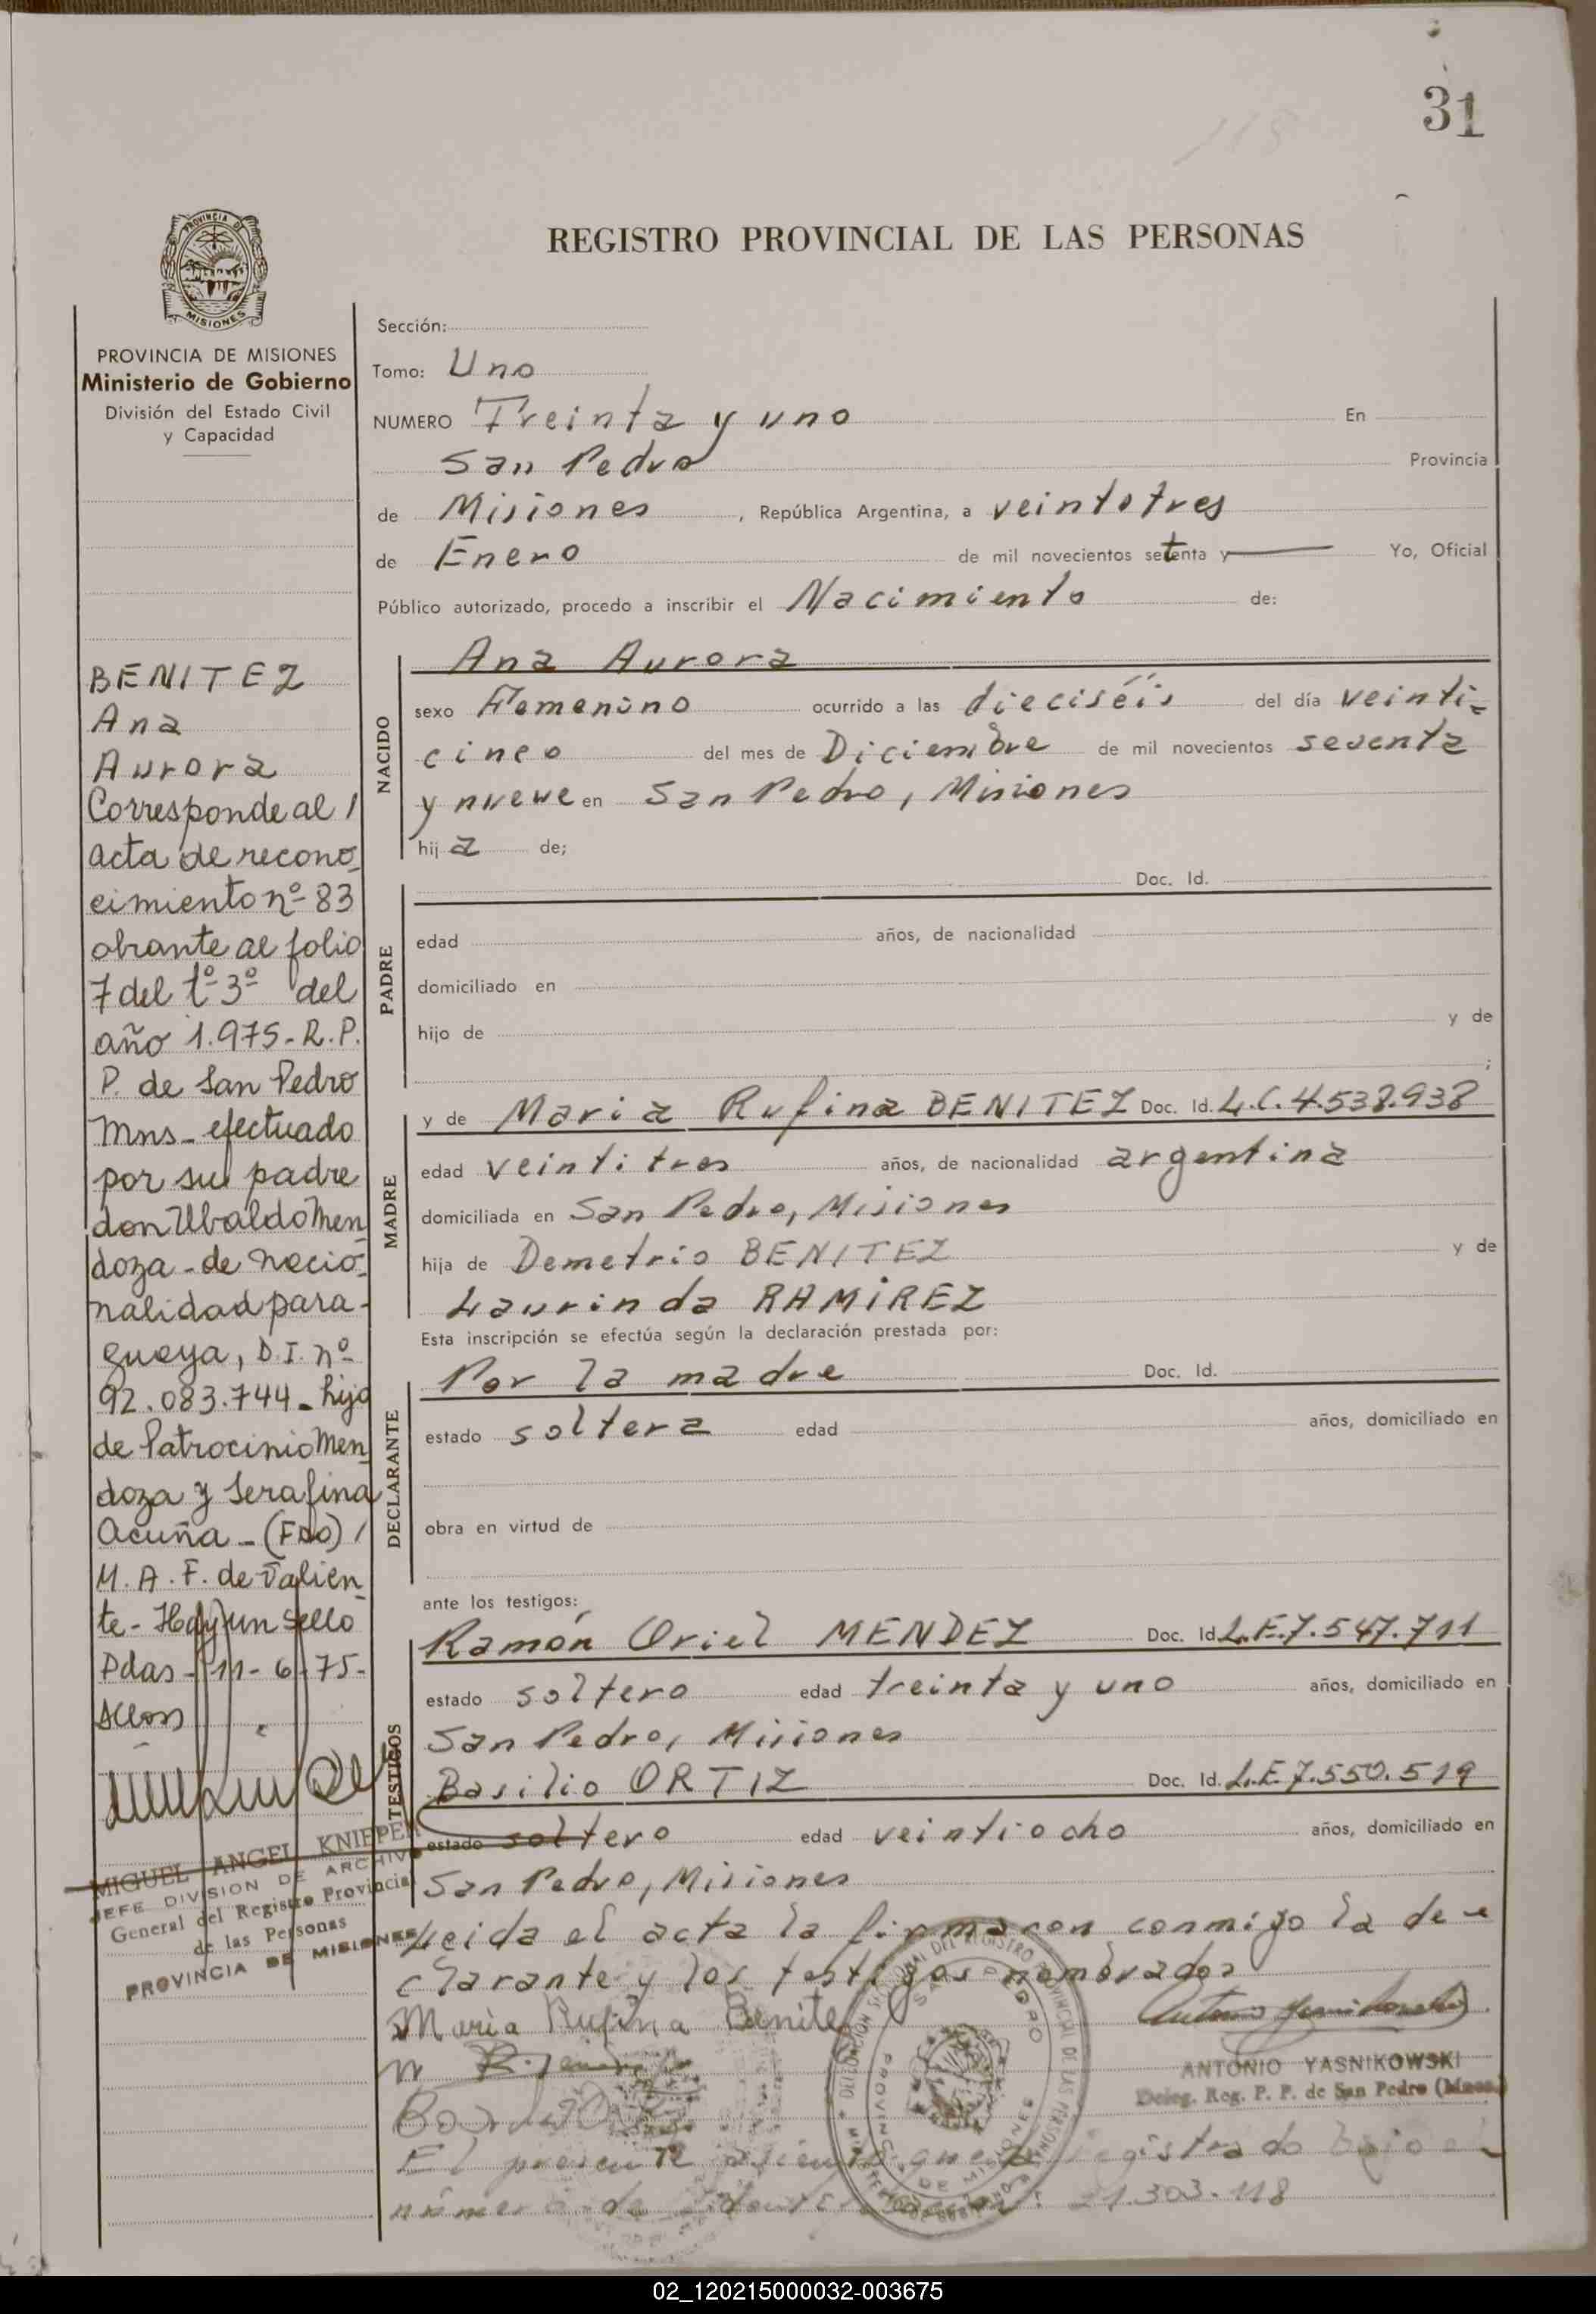 31
118
PROVINCIA DE
MISIONES
REGISTRO PROVINCIAL DE LAS PERSONAS
PROVINCIA DE MISIONES
Ministerio de Gobierno
División del Estado Civil
y Capacidad
BENITEZ
Ana
Aurora
Corresponde al /
acta de recono
cimiento nº 83
obrante al folio
7 del tº 3º del
año 1.975 - R.P.
P. de San Pedro
Mns - efectuado
por su padre
don Ubaldo Men
doza - de nacio
nalidad para-
guaya, D.I. nº
92.083.744 - hijo
de Patrocinio Men
doza y Serafina
Acuña - (Fdo) /
M. A. F. de Valien
te - Hay un sello
Pdas - 11 - 6 - 75 -
MIGUEL ANGEL KNIEPER
JEFE DIVISION DE ARCHIVO
General del Registro Provincial
de las Personas
PROVINCIA DE MISIONES
Sección:
Tomo: Uno
NUMERO Treinta y uno En
San Pedro Provincia
de Misiones , República Argentina, a veintotres
de Enero de mil novecientos setenta y — Yo, Oficial
Público autorizado, procedo a inscribir el Nacimiento de:
NACIDO
Ana Aurora
sexo Femenino ocurrido a las dieciséis del día veinti-
cinco del mes de Diciembre de mil novecientos sesenta
y nueve en San Pedro, Misiones
hij a de;
PADRE
Doc. Id.
edad años, de nacionalidad
domiciliado en
hijo de y de
;
MADRE
y de Maria Rufina BENITEZ Doc. Id. L.C. 4.538.938
edad veintitres años, de nacionalidad argentina
domiciliada en San Pedro, Misiones
hija de Demetrio BENITEZ y de
Laurinda RAMIREZ
Esta inscripción se efectúa según la declaración prestada por:
DECLARANTE
Por la madre Doc. Id.
estado soltera edad años, domiciliado en
obra en virtud de
ante los testigos:
TESTIGOS
Ramón Oriel MENDEZ Doc. Id. L.E. 7.547.711
estado soltero edad treinta y uno años, domiciliado en
San Pedro, Misiones
Basilio ORTIZ Doc. Id. L.E. 7.550.519
estado soltero edad veintiocho años, domiciliado en
San Pedro, Misiones
Leida el acta la firmaron conmigo la de
clarante y los testigos nombrados
Maria Rufina Benitez
ANTONIO YASNIKOWSKI
Deleg. Reg. P. P. de San Pedro (Mnes.)
El presente asiento queda registrado bajo el
número de identificación: 21.303.118
02_120215000032-003675